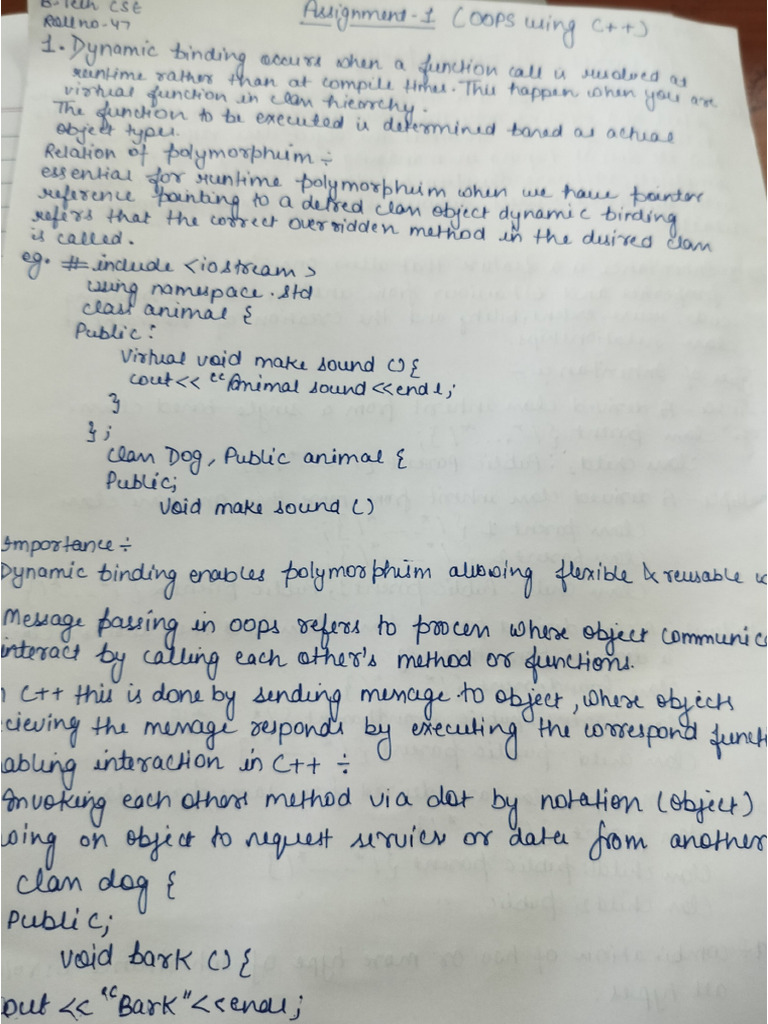 B-Tech CSE
Roll no-47
Assignment-1 (OOPS using C++)
1. Dynamic binding occurs when a function call is resolved as
runtime rather than at compile time. This happen when you are
virtual function in class hierchy.
The function to be executed is determined based as actual
object types.
Relation of polymorphism ÷
essential for runtime polymorphism when we have pointer
reference pointing to a class object dynamic binding
refers that the correct overridden method in the desired class
is called.
eg. # include <iostream>
using namespace . std
class animal {
Public :
Virtual void make sound () {
cout<< "Animal sound <<endl;
}
};
class Dog, Public animal {
Public;
void make sound ()
Importance ÷
Dynamic binding enables polymorphism allowing flexible & reusable
Message passing in oops refers to process where object communic
interact by calling each other's method or functions.
C++ this is done by sending message to object, where objects
cieving the message responds by executing the correspond functi
abling interaction in C++ ÷
Invoking each others method via dot by notation (object)
oing on object to request services or data from another
class dog {
Public;
void bark () {
out << "Bark" <<endl;